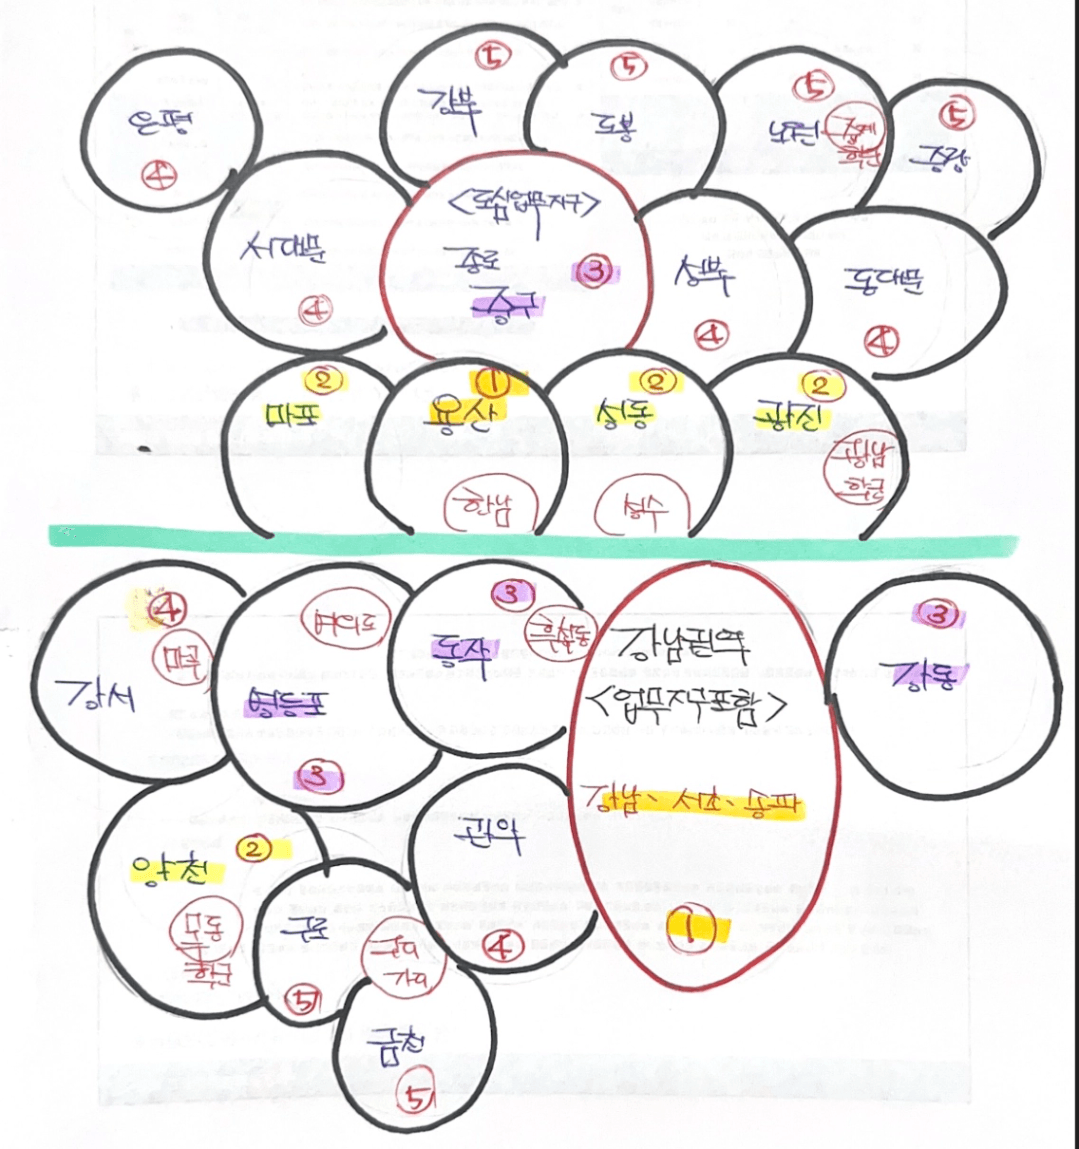 은평
④
강북
⑤
도봉
⑤
노원
⑤
중계
학군
중랑
⑤
서대문
④
<도심업무지구>
종로
중구
③
성북
④
동대문
④
마포
②
용산
①
한남
성동
②
성수
광진
②
광남
학군
강서
④
마곡
여의도
영등포
③
동작
③
흑석동
강남권역
<업무지구포함>
강남、서초、송파
①
강동
③
양천
②
목동
학군
구로
⑤
관악
④
금천
⑤